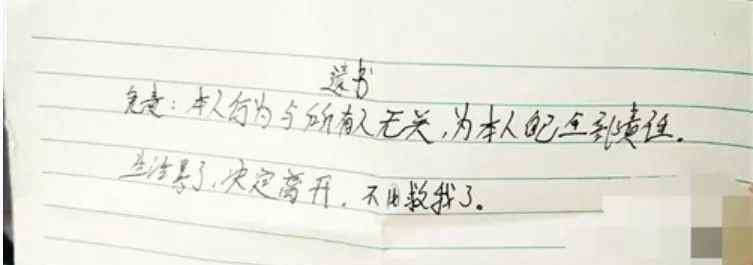 遗书
免责：本人行为与所有人无关，为本人自己全部责任。
生活累了，决定离开，不用救我了。